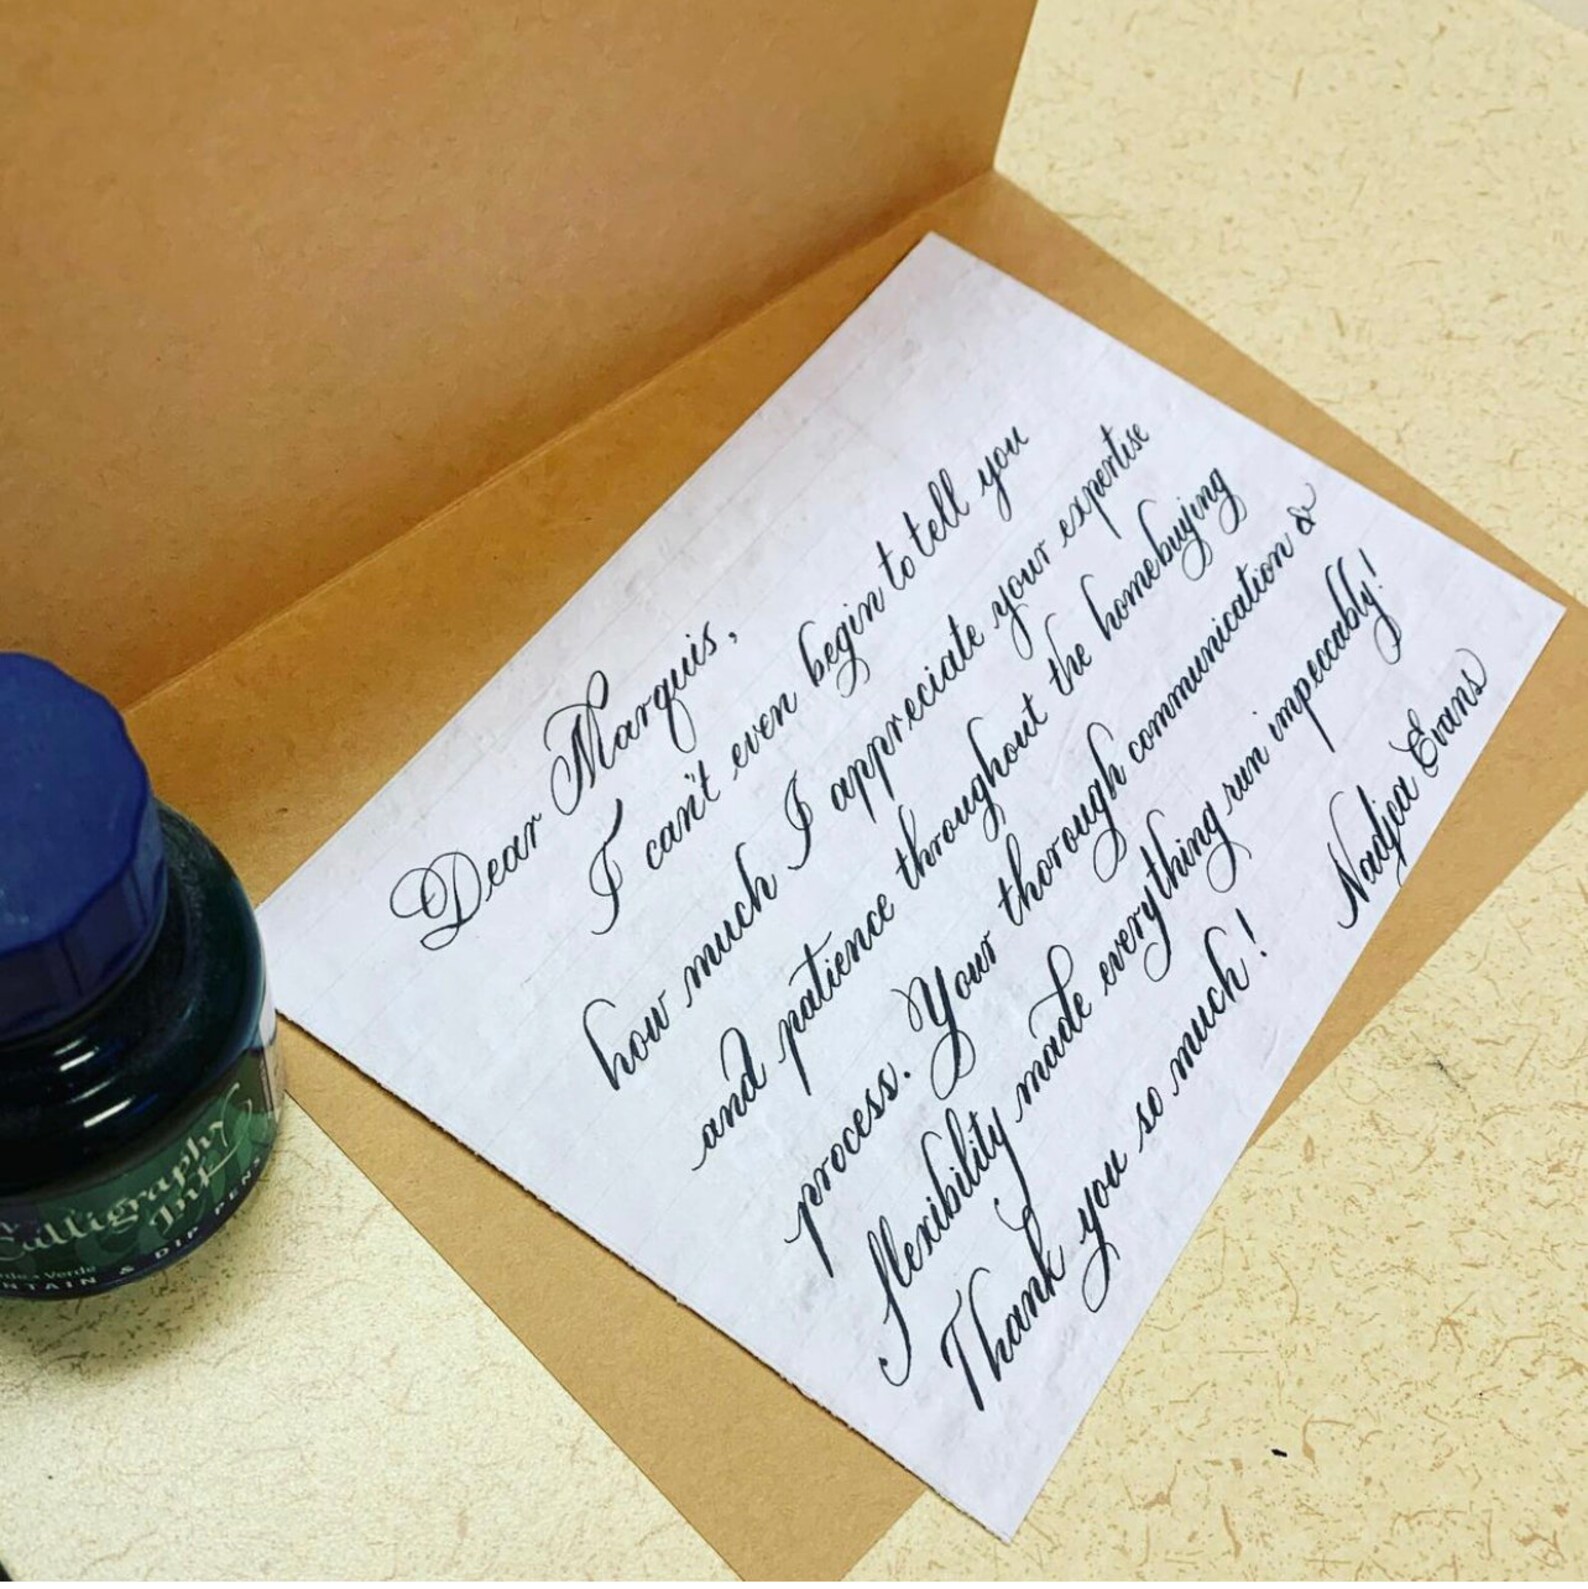 Dear Marquis,
I can't even begin to tell you
how much I appreciate your expertise
and patience throughout the homebuying
process. Your thorough communication &
flexibility made everything run impeccably!
Thank you so much!
Nadja Evans
Calligraphy
Ink
Verde
NTAIN & DIP PENS